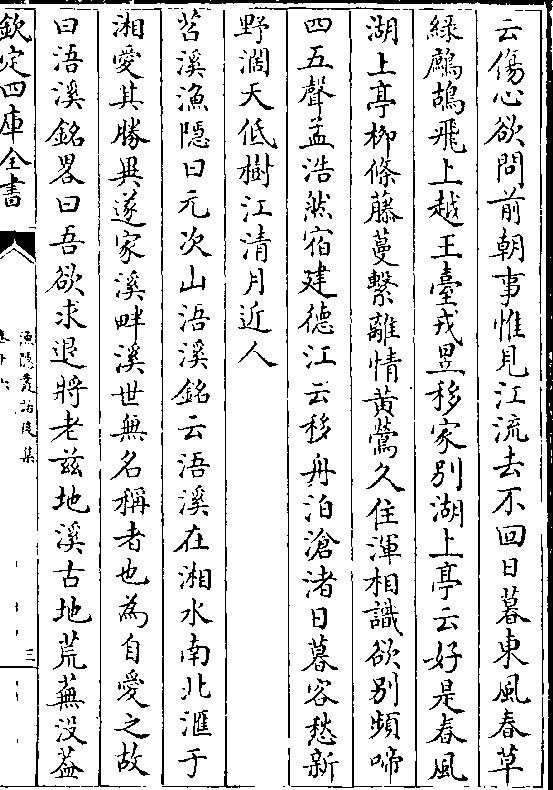 云傷心欲問前朝事惟見江流去不回日暮東風春草
綠鷓鴣飛上越王臺戎昱移家別湖上亭云好是春風
湖上亭栁條藤蔓繫離情黄鶯久住渾相識欲别頻啼
四五聲孟浩然宿建徳江云移舟泊滄渚日暮客愁新
野濶天低樹江清月近人
苕溪漁隠曰元次山浯溪銘云浯溪在湘水南北滙于
湘愛其勝異遂家溪畔溪世無名稱者也為自愛之故
曰浯溪銘畧曰吾欲求退將老兹地溪古地荒蕪没葢
欽定四庫全書
漁隠叢話後集
三